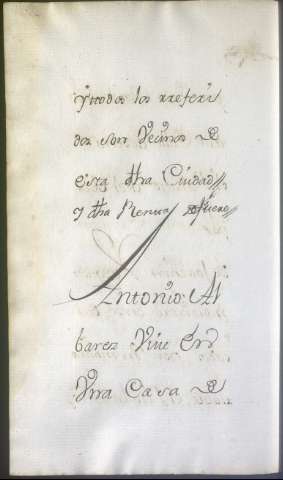 y ttodos los rreferi
dos son Vecinos de
esta dha Ciudad
y dha Renta
Antonio Al
barez Vive En
Vna Casa de